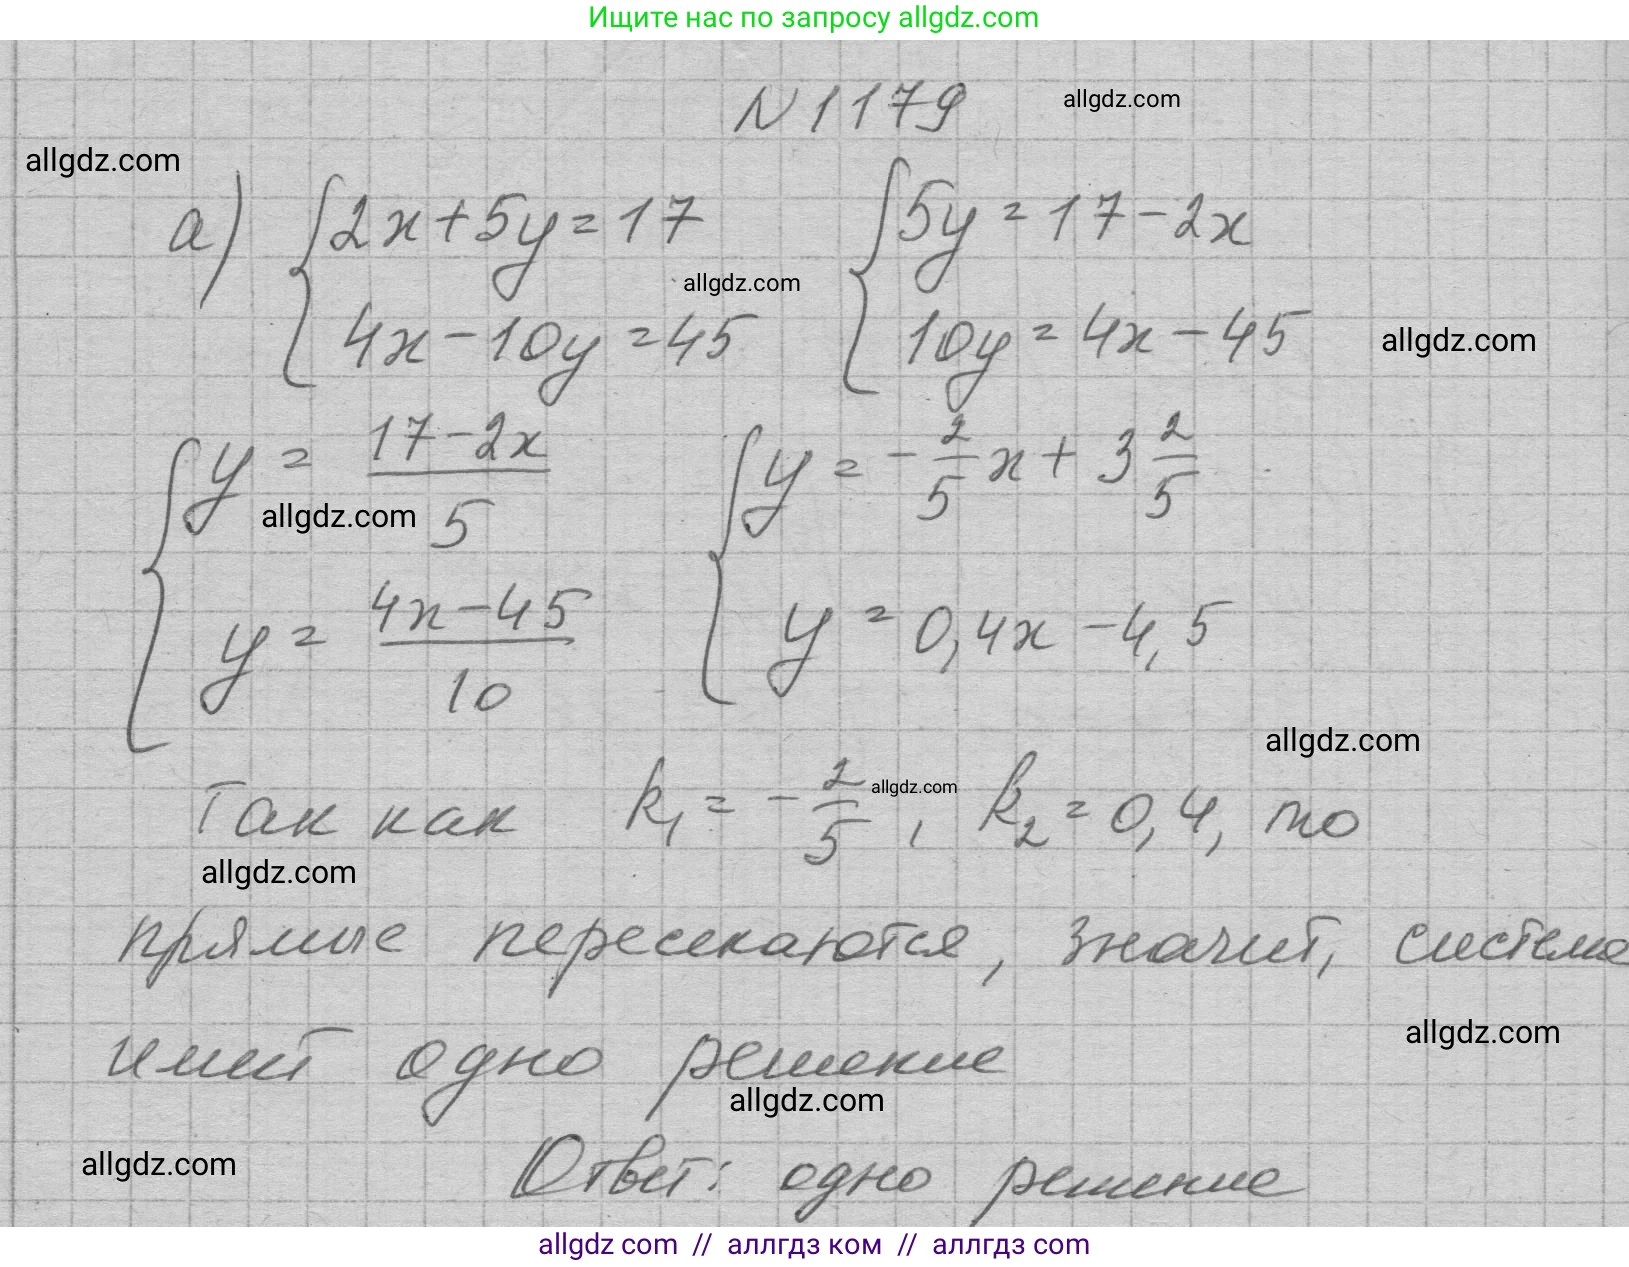 Ищите нас по запросу allgdz.com
N 1179
allgdz.com
allgdz.com
а) { 2x+5y=17 { 5y=17-2x
allgdz.com
4x-10y=45 10y=4x-45
allgdz.com
{ y = (17-2x)/5 { y = -2/5 x + 3 2/5
allgdz.com
y = (4x-45)/10 y = 0,4x-4,5
allgdz.com
Так как k₁ = -2/5, k₂ = 0,4, то
allgdz.com
allgdz.com
прямые пересекаются, значит, система
allgdz.com
имеет одно решение
allgdz.com
allgdz.com
Ответ: одно решение
allgdz com // аллгдз ком // аллгдз com